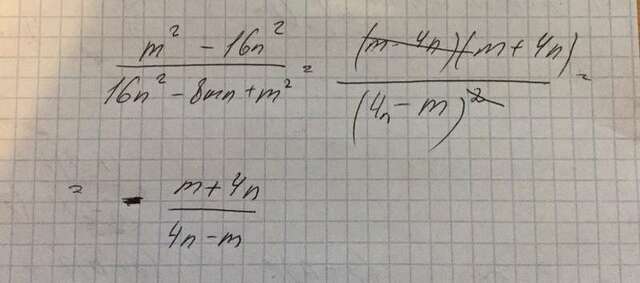 (m² - 16n²)/(16n² - 8mn + m²) = ((m - 4n)(m + 4n))/(4n - m)² =
= - (m + 4n)/(4n - m)